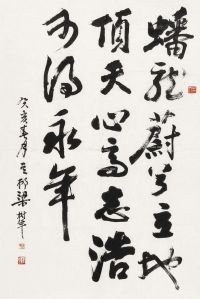 蟠龙蔚兮立地
顶天心高志浩
可得永年
癸亥春月王邨梁树年